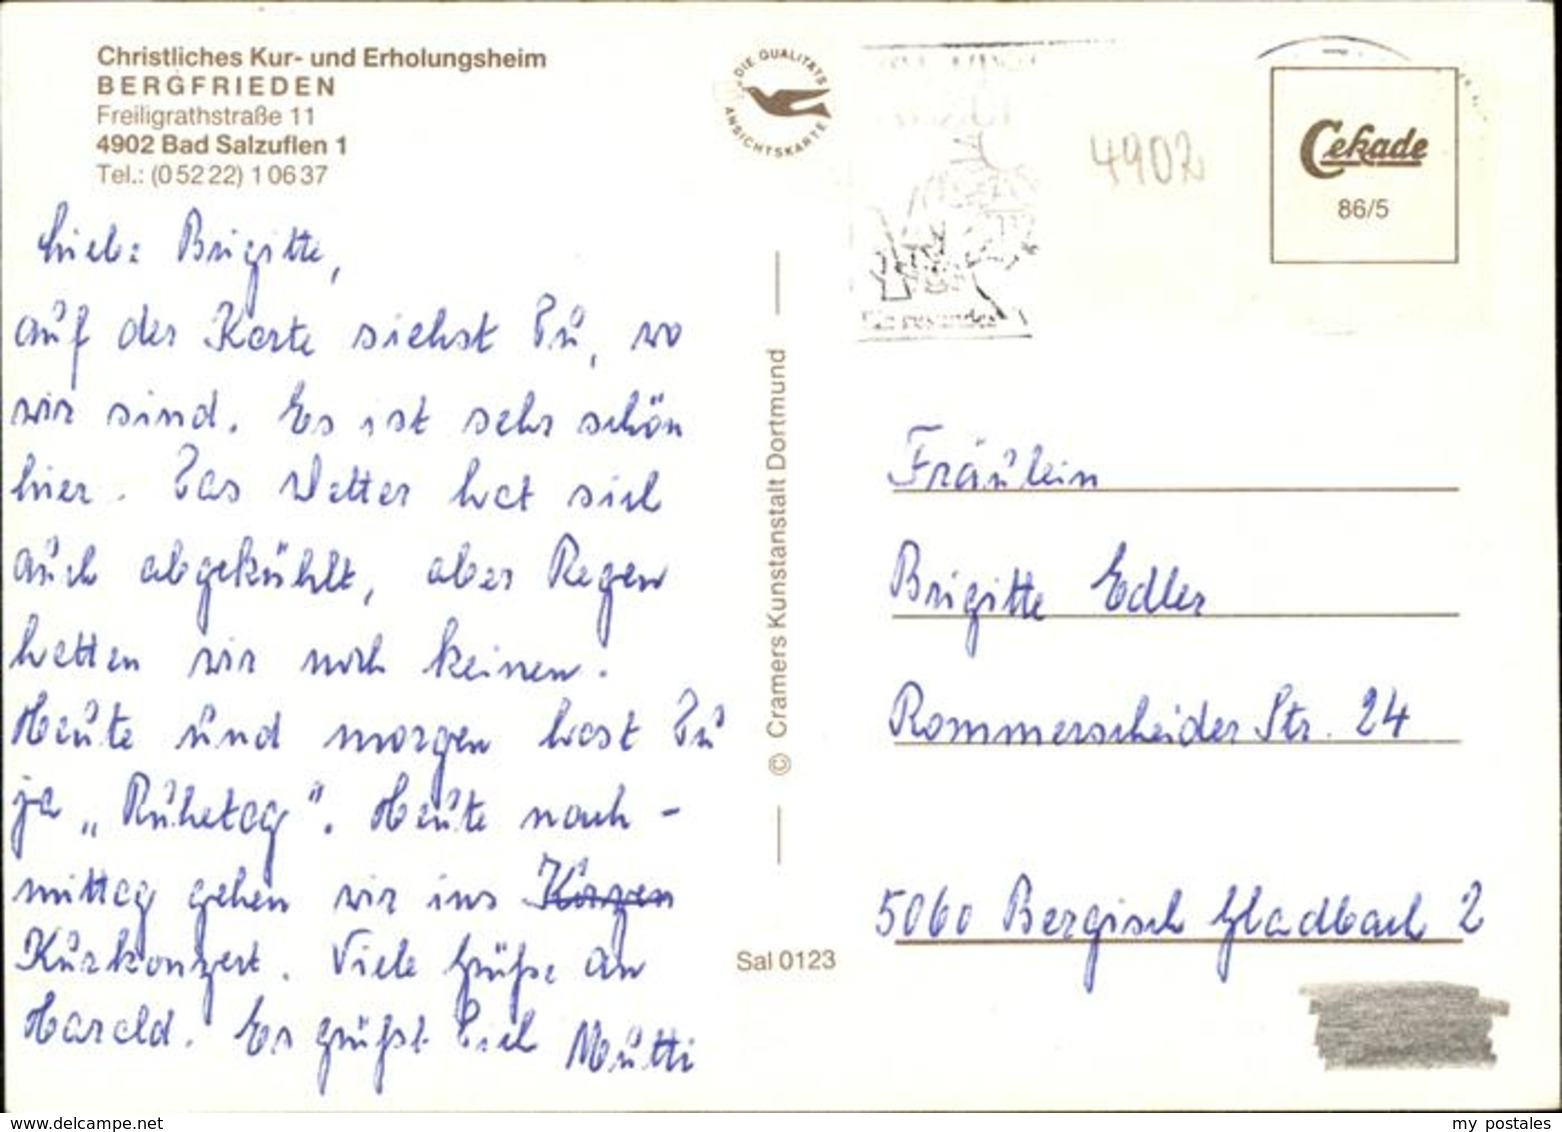 Christliches Kur- und Erholungsheim
BERGFRIEDEN
Freiligrathstraße 11
4902 Bad Salzuflen 1
Tel.: (0 52 22) 1 06 37
Liebe Brigitte,
auf der Karte siehst Du, wo
wir sind. Es ist sehr schön
hier. Das Wetter hat sich
auch abgekühlt, aber Regen
hatten wir noch keinen.
Heute und morgen hast Du
ja „Ruhetag". Heute nach-
mittag gehen wir ins
Kurkonzert. Viele Grüße an
Harald. Es grüßt Dich Mutti
DIE QUALITÄTS
ANSICHTSKARTE
© Cramers Kunstanstalt Dortmund
Sal 0123
4902
Cekade
86/5
Fräulein
Brigitte Edler
Rommerscheider Str. 24
5060 Bergisch Gladbach 2
www.delcampe.net
my_postales